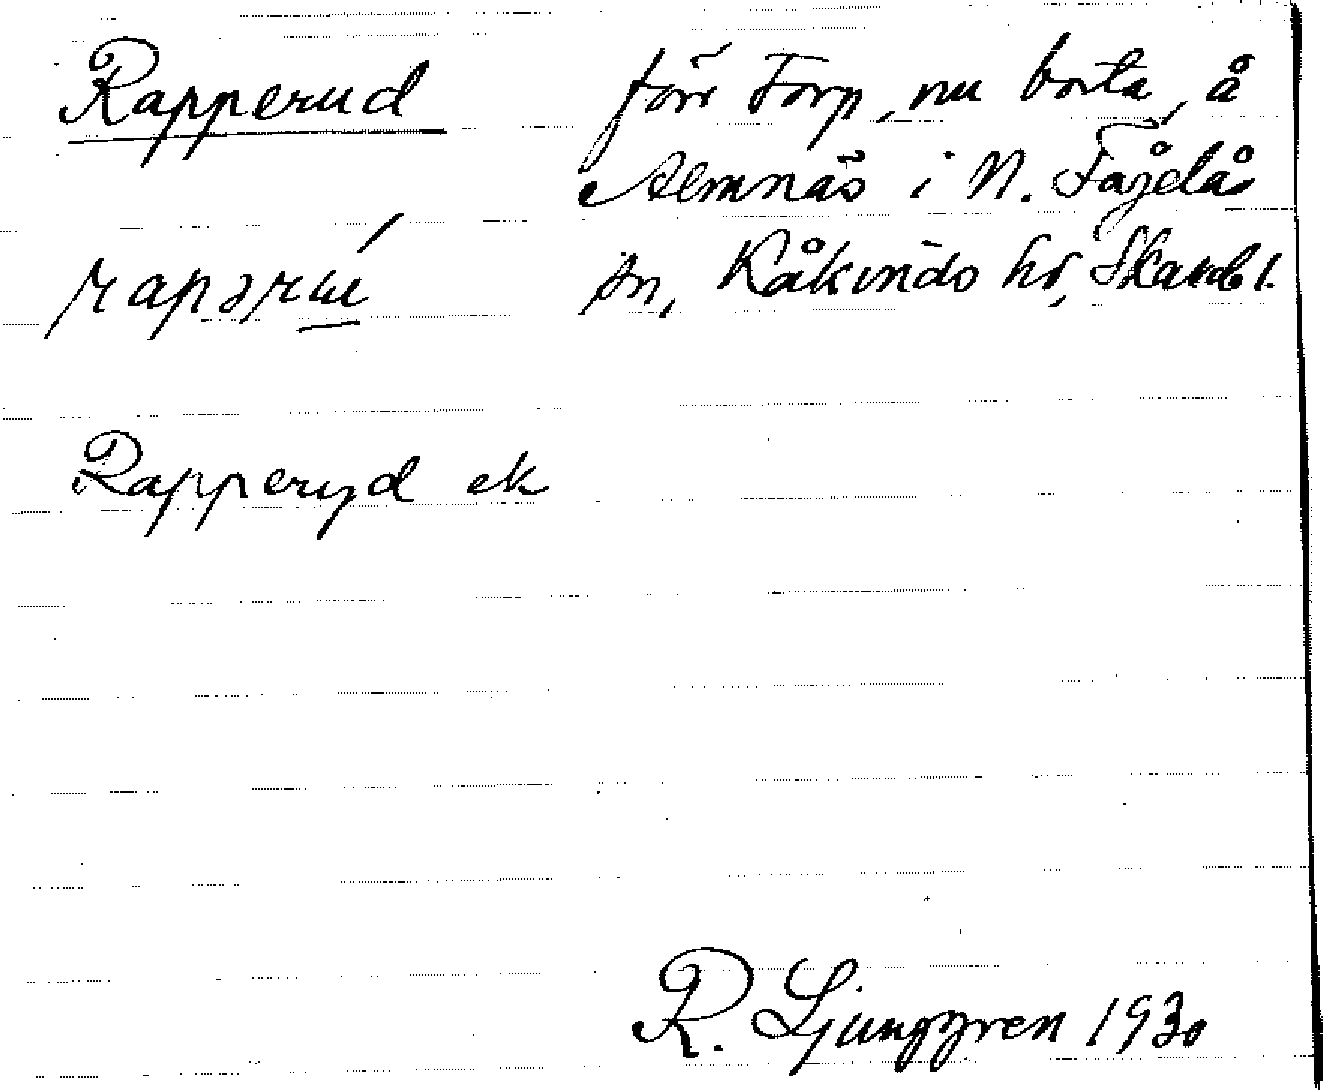 Rapperud
förr Torp, nu borta, å
Almnäs i N. Fågelås
sn, Kåkinds hd, Skarab l.
rapərú
Rapperyd ek
R. Ljunggren 1930